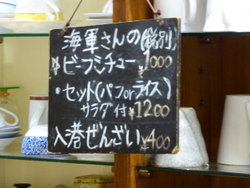 海軍さんの
ビーフシチュー ¥1000
・セット(パンorライス)
サラダ付 ¥1200
入港ぜんざい ¥400